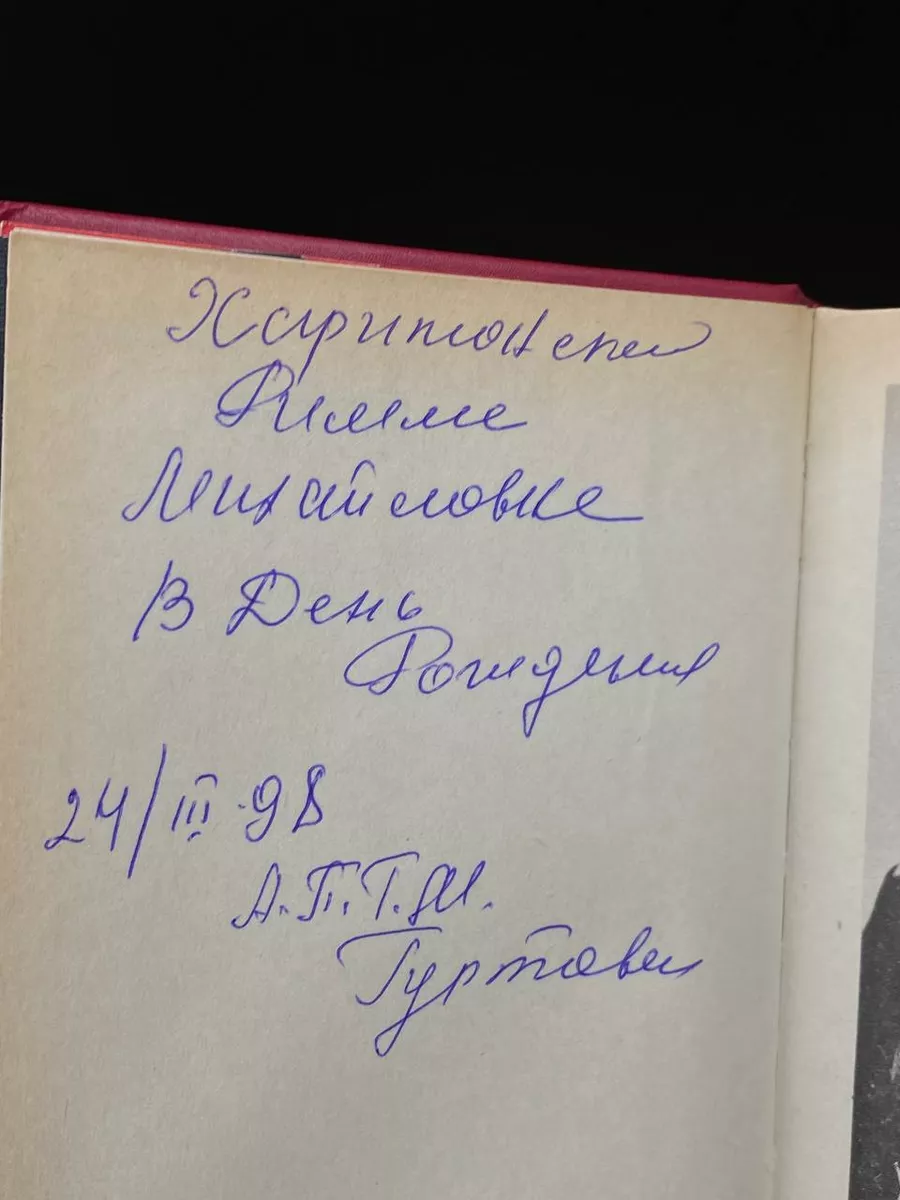 Харитонский
Римме
Михайловне
В День
Рождения
24/III·98
А.П.Т.М.
Гуртовы